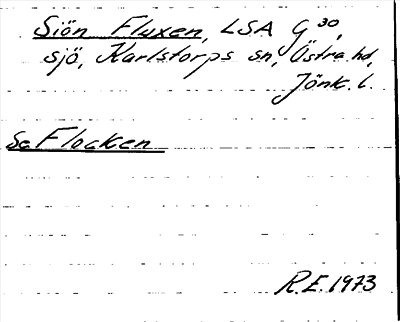 Sjön Fluxen, LSA G 30,
sjö, Karlstorps sn, Östra hd,
Jönk. l.
Se Flocken
R.E. 1973